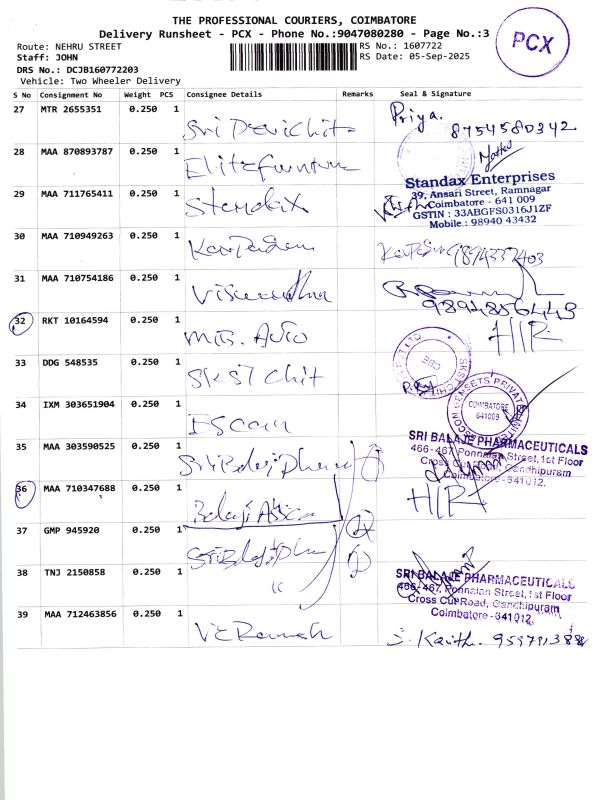 THE PROFESSIONAL COURIERS, COIMBATORE
Delivery Runsheet - PCX - Phone No.:9047080280 - Page No.:3
Route: NEHRU STREET
RS No.: 1607722
Staff: JOHN
RS Date: 05-Sep-2025
DRS No.: DCJB160772203
Vehicle: Two Wheeler Delivery
PCX
S No Consignment No Weight PCS Consignee Details Remarks Seal & Signature
27 MTR 2655351 0.250 1 Sri Devi Chits Priya.
8754580342
28 MAA 870893787 0.250 1 Elite furniture
29 MAA 711765411 0.250 1 Standax
Standax Enterprises
39, Ansari Street, Ramnagar
Coimbatore - 641 009
GSTIN : 33ABGFS0316J1ZF
Mobile : 98940 43432
30 MAA 710949263 0.250 1
31 MAA 710754186 0.250 1
9894856443
32 RKT 10164594 0.250 1 MTS. Auto H/R
33 DDG 548535 0.250 1 SKST Chit
CBE
34 IXM 303651904 0.250 1 Escon
COIMBATORE
641009
35 MAA 303590525 0.250 1 Sri Balaji Pharma
SRI BALAJE PHARMACEUTICALS
466-467, Ponnaian Street, 1st Floor
Cross Cut Road, Gandhipuram
Coimbatore - 641012.
36 MAA 710347688 0.250 1 Balaji Assoc H/R
37 GMP 945920 0.250 1 Sri Balaji Pha
38 TNJ 2150858 0.250 1 "
SRI BALAJE PHARMACEUTICALS
466-467, Ponnaian Street, 1st Floor
Cross Cut Road, Gandhipuram
Coimbatore - 641012.
39 MAA 712463856 0.250 1 V E Ramesh